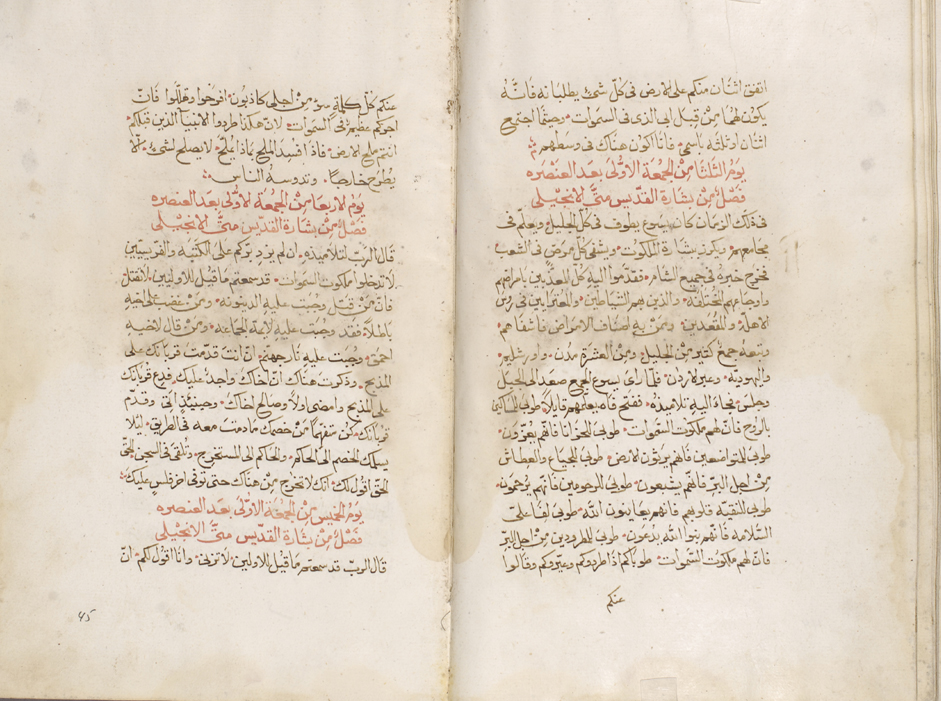 اتفق اثنان منكم على الارض فى كلّ شىء يطلبانه فانّه
يكون لهما مِن قِبل ابى الذى فى السموات • وحيثما اجتمع
اثنان او ثلثه باسمى • فانا اكون هناك فى وسطهم
يوم الثلثا مِن الجمعة الاولى بعد العنصره
فصْل مِن بشارة القديس متى الانجيلى
فى ذلك الزمان كان يسوع يطوف فى كل الجليل ويعلم فى
مجامعهم • ويكرز ببشارة الملكوت • ويشفى كل مرض فى الشعب
فخرج خبره فى جميع الشام • فقدموا اليه كل المعذبين بامراضهم
واوجاعهم المختلفه • والذين بهم الشياطين • والمعترايين فى روس
الاهلة • والمقعدين • ومَن به اصناف الامراض فاشفاهم •
وتبعه جمع كثير من الجليل • ومن العشرة مدن • واورشليم •
واليهودية • وعبر الاردن • فلما رأى يسوع الجمع صعد الى الجبل
وجلس • فجاء اليه تلاميذه • ففتح فاه يعلمهم قايلا • طوبى للمساكين
بالروح فانّ لهم ملكوت السموات • طوبى للحزانا فانهم يعزون •
طوبى للمتواضعين فانهم يرثون الارض • طوبى للجياع والعطاش
مِن اجل البرّ فانهم يشبعون • طوبى للرحومين فانهم يرحمون •
طوبى للنقيّه قلوبهم فانهم يعاينون الله • طوبى لفاعلى
السلامه فانهم بنوا الله يدعون • طوبى للمطرودين من اجل البرّ
فانّ لهم ملكوت السموات • طوباكم اذا طردوكم وعيروكم وقالوا
عنكم
عنكم كلّ كلمة سوٍ من اجلى كاذبون • افرحوا وتهللوا فانّ
اجركم عظيم فى السموات • لان هكذا طردوا الانبيا الذين قبلكم •
انتم ملح الارض • فاذا افسد الملح بماذا يملح • لا يصلح لشىء • الا
يطرح خارجا • وتدوسه الناس
يوم الاربعا مِن الجمعة الاولى بعد العنصره
فصْل مِن بشارة القديس متى الانجيلى
قال الرب لتلاميذه • ان لم يزد بركم على الكتبة والفريسيين
لا تدخلوا ملكوت السموات • قد سمعتم ما قيل للاولين • لا تقتل
فانّ مَن قتل وجبت عليه الدينونه • ومَن غضب على اخيه
باطلا • فقد وجبت عليه لايمة الجماعه • ومن قال لاخيه
احمق • وجبت عليه نار جهنم • ان انت قدمت قربانك على
المذبح • وذكرت هناك انّ اخاك واجد عليك • فدع قربانك
على المذبح وامضى اولا وصالح اخاك • وحينيذ اتى وقدّم
قربانك • كن متفهما مَن خصمك ما دمت معه فى الطريق • ليلا
يسلمك الخصم الى الحاكم • والحاكم الى المستخرج • وتلقى فى السجن الحق
الحق اقول لك • انك لا تخرج من هناك حتى توفى اخر فلس عليك
يوم الخميس مِن الجمعة الاولى بعد العنصره
فصْل مِن بشارة القديس متى الانجيلى
قال الرب قد سمعتم ما قيل للاولين لا تزنى • وانا اقول لكم • انّ
45